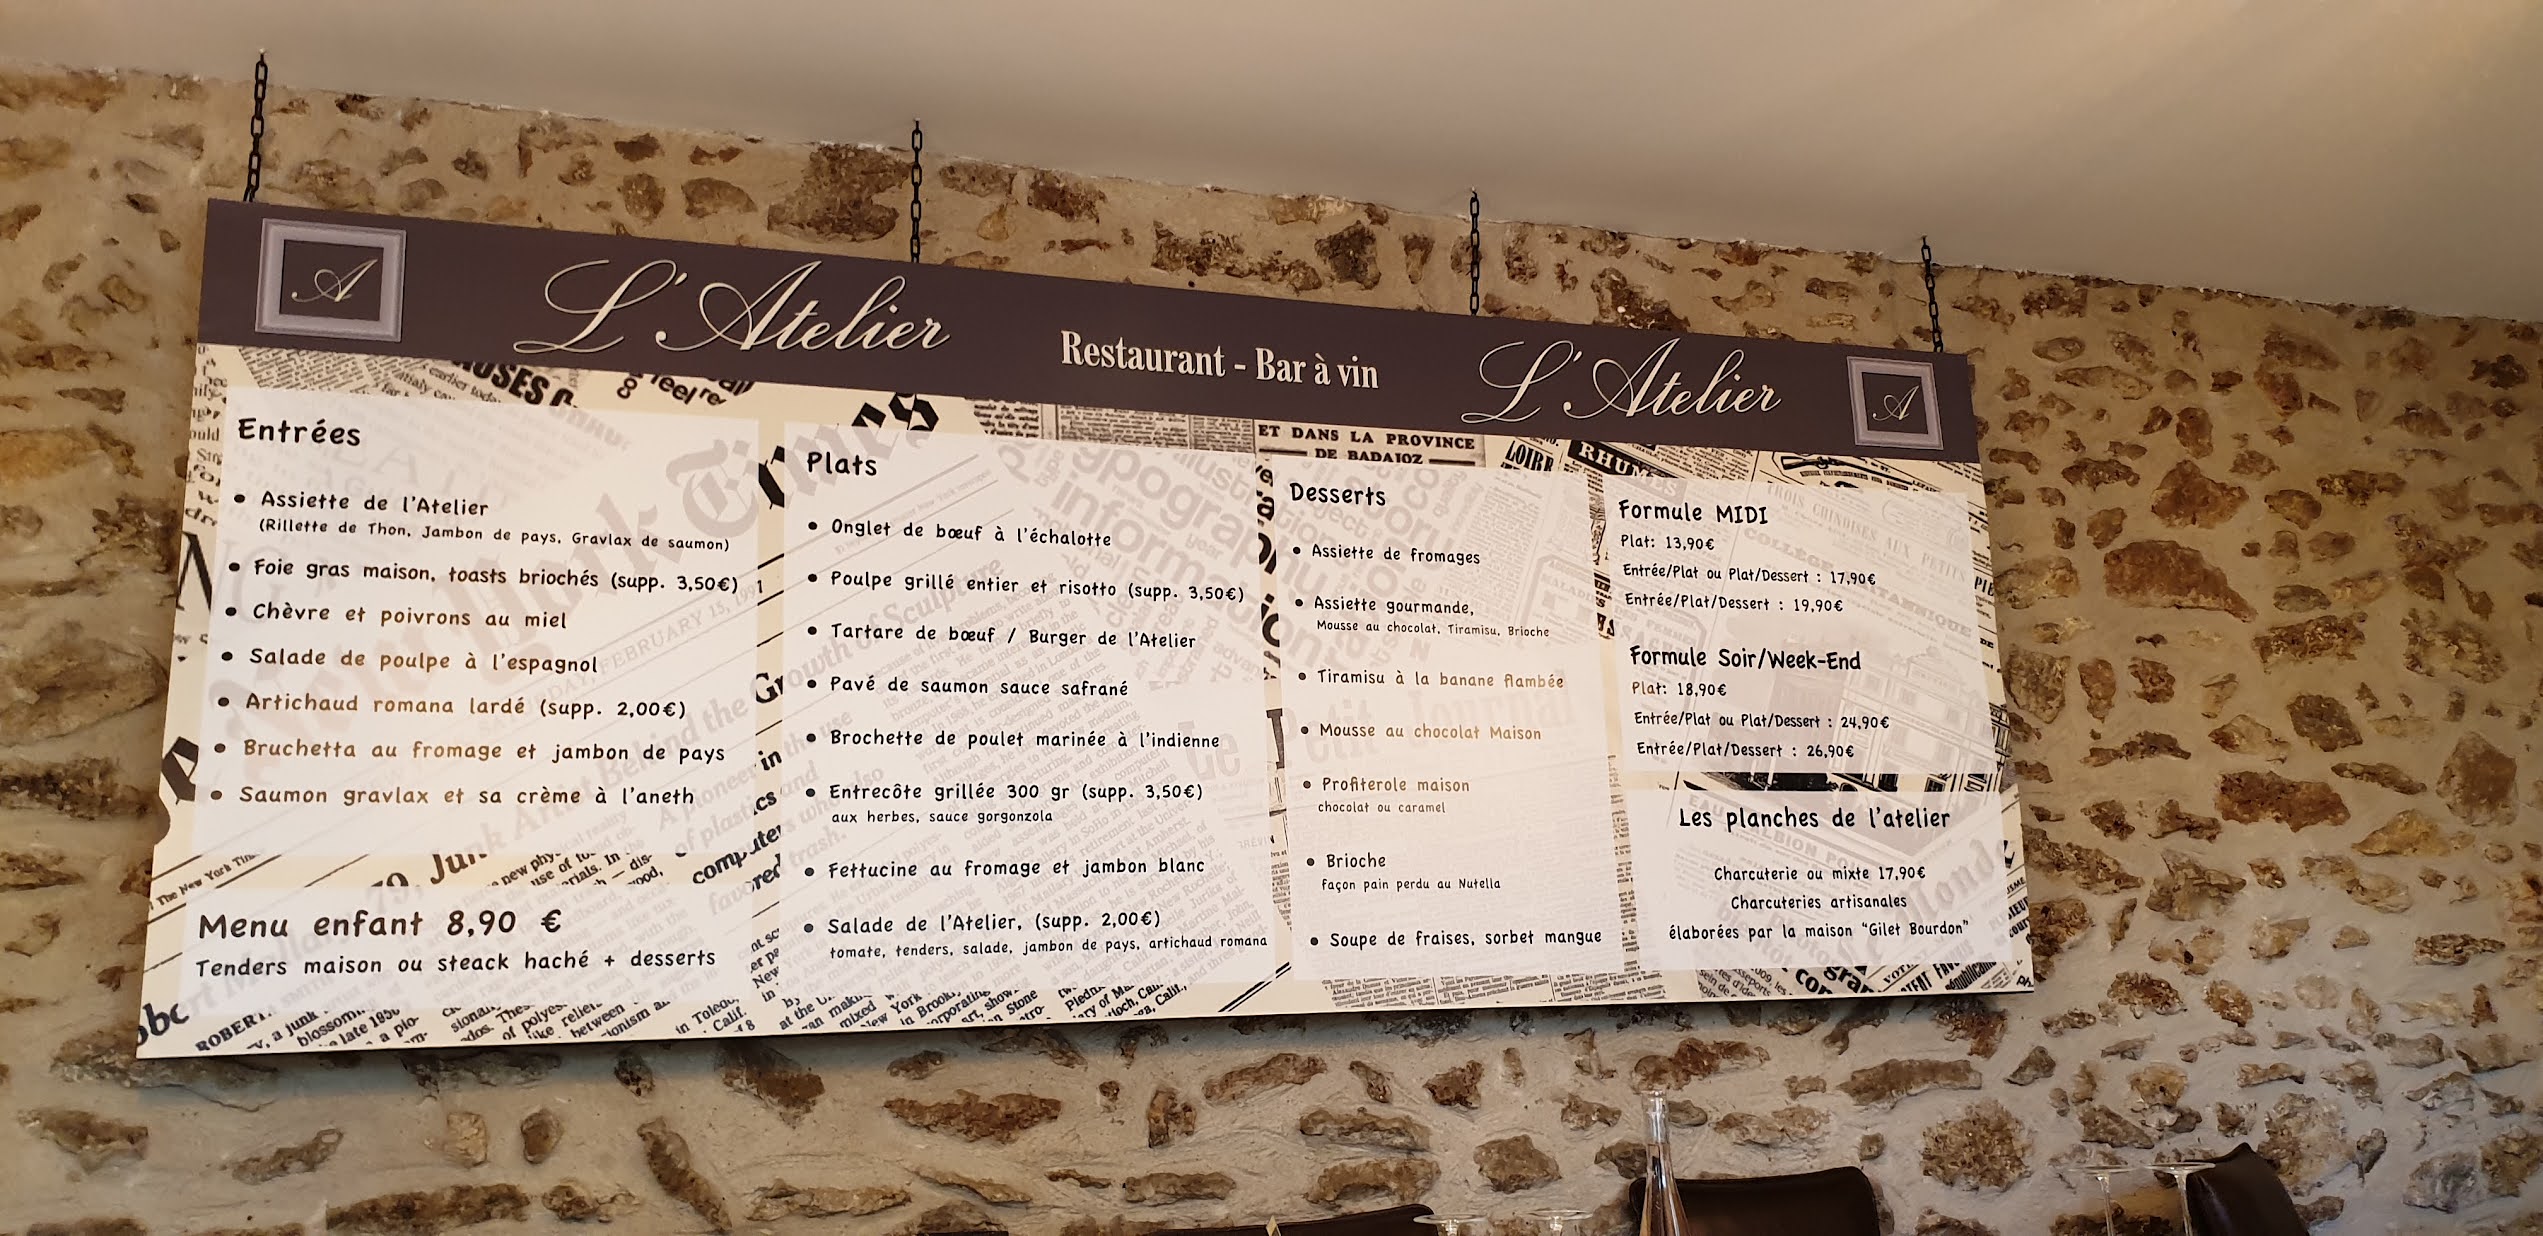 A
L'Atelier
Restaurant - Bar à vin
L'Atelier
A
Entrées
• Assiette de l'Atelier
(Rillette de Thon, Jambon de pays, Gravlax de saumon)
• Foie gras maison, toasts briochés (supp. 3,50€)
• Chèvre et poivrons au miel
• Salade de poulpe à l'espagnol
• Artichaud romana lardé (supp. 2,00€)
• Bruchetta au fromage et jambon de pays
• Saumon gravlax et sa crème à l'aneth
Menu enfant 8,90 €
Tenders maison ou steack haché + desserts
Plats
• Onglet de bœuf à l'échalotte
• Poulpe grillé entier et risotto (supp. 3,50€)
• Tartare de bœuf / Burger de l'Atelier
• Pavé de saumon sauce safrané
• Brochette de poulet marinée à l'indienne
• Entrecôte grillée 300 gr (supp. 3,50€)
aux herbes, sauce gorgonzola
• Fettucine au fromage et jambon blanc
• Salade de l'Atelier, (supp. 2,00€)
tomate, tenders, salade, jambon de pays, artichaud romana
Desserts
• Assiette de fromages
• Assiette gourmande,
Mousse au chocolat, Tiramisu, Brioche
• Tiramisu à la banane flambée
• Mousse au chocolat Maison
• Profiterole maison
chocolat ou caramel
• Brioche
façon pain perdu au Nutella
• Soupe de fraises, sorbet mangue
Formule MIDI
Plat: 13,90€
Entrée/Plat ou Plat/Dessert : 17,90€
Entrée/Plat/Dessert : 19,90€
Formule Soir/Week-End
Plat: 18,90€
Entrée/Plat ou Plat/Dessert : 24,90€
Entrée/Plat/Dessert : 26,90€
Les planches de l'atelier
Charcuterie ou mixte 17,90€
Charcuteries artisanales
élaborées par la maison "Gilet Bourdon"
ET DANS LA PROVINCE
DE BADAJOZ
LOIRE
RHUM
The New York